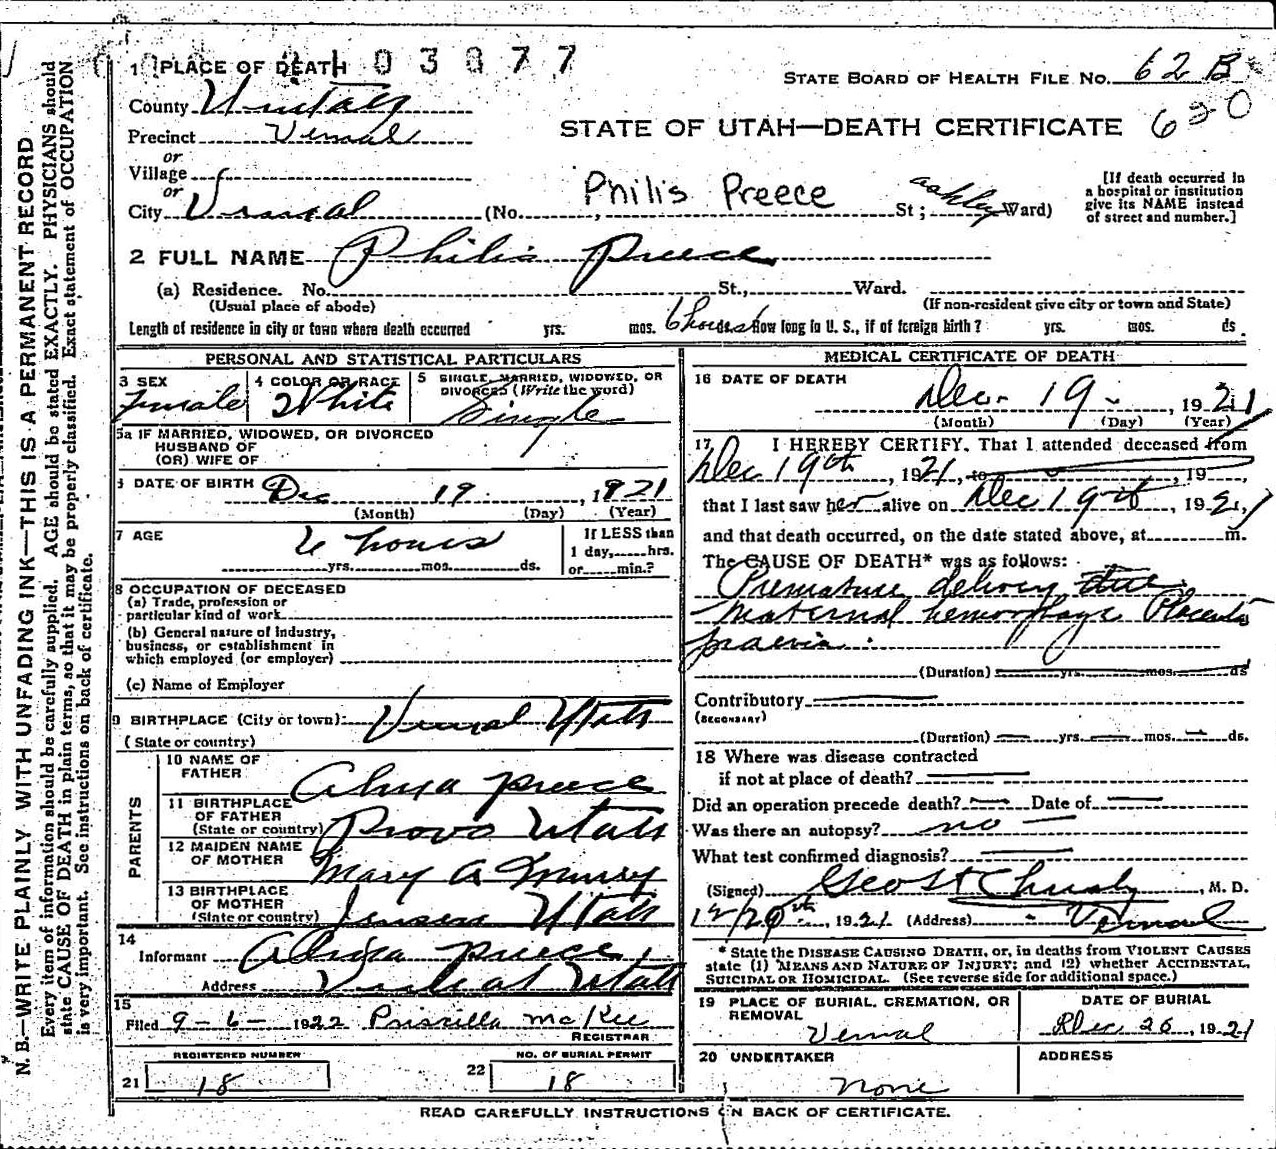 N. B.—WRITE PLAINLY WITH UNFADING INK—THIS IS A PERMANENT RECORD
Every item of information should be carefully supplied. AGE should be stated EXACTLY. PHYSICIANS should
state CAUSE OF DEATH in plain terms, so that it may be properly classified. Exact statement of OCCUPATION
is very important. See instructions on back of certificate.
1 PLACE OF DEATH
STATE BOARD OF HEALTH FILE NO. 62 B
620
County Uintah
Precinct Vernal
STATE OF UTAH—DEATH CERTIFICATE
or
Village
or
City Vernal (No. , Philis Preece St; Ashley Ward)
[If death occurred in
a hospital or institution
give its NAME instead
of street and number.]
2 FULL NAME Philis Preece
(a) Residence. No. St., Ward.
(Usual place of abode) (If non-resident give city or town and State)
Length of residence in city or town where death occurred yrs. mos. 6 hours ds. How long in U. S., if of foreign birth? yrs. mos. ds.
PERSONAL AND STATISTICAL PARTICULARS
3 SEX Female
4 COLOR OR RACE White
5 SINGLE, MARRIED, WIDOWED, OR
DIVORCED (Write the word) Single
5a IF MARRIED, WIDOWED, OR DIVORCED
HUSBAND OF
(OR) WIFE OF
6 DATE OF BIRTH Dec 19, 1921
(Month) (Day) (Year)
7 AGE 6 hours
yrs. mos. ds.
If LESS than
1 day, hrs.
or min.?
8 OCCUPATION OF DECEASED
(a) Trade, profession or
particular kind of work
(b) General nature of industry,
business, or establishment in
which employed (or employer)
(c) Name of Employer
9 BIRTHPLACE (City or town): Vernal Utah
(State or country)
PARENTS
10 NAME OF
FATHER Alma Preece
11 BIRTHPLACE
OF FATHER
(State or country) Provo Utah
12 MAIDEN NAME
OF MOTHER Mary A Murray
13 BIRTHPLACE
OF MOTHER
(State or country) Jensen Utah
14
Informant Alma Preece,
Address Utah
15
Filed 9-6- 1922 Priscilla McKee
REGISTRAR
REGISTERED NUMBER
21 18
NO. OF BURIAL PERMIT
22 18
MEDICAL CERTIFICATE OF DEATH
16 DATE OF DEATH
Dec. 19 , 1921
(Month) (Day) (Year)
17 I HEREBY CERTIFY, That I attended deceased from
Dec 19th, 1921, to , 19
that I last saw her alive on Dec 19th, 1921,
and that death occurred, on the date stated above, at m.
The CAUSE OF DEATH* was as follows:
Premature delivery due
maternal hemorrhage Placenta
praevia.
(Duration) yrs. mos. ds
Contributory
(SECONDARY)
(Duration) yrs. mos. ds.
18 Where was disease contracted
if not at place of death?
Did an operation precede death? Date of
Was there an autopsy? no
What test confirmed diagnosis?
(Signed) Geo , M. D.
12/20th, 1921 (Address) Vernal
* State the DISEASE CAUSING DEATH, or, in deaths from VIOLENT CAUSES
state (1) MEANS AND NATURE OF INJURY; and (2) whether ACCIDENTAL,
SUICIDAL OR HOMICIDAL. (See reverse side for additional space.)
19 PLACE OF BURIAL, CREMATION, OR
REMOVAL
Vernal
DATE OF BURIAL
Dec 26, 1921
20 UNDERTAKER
none
ADDRESS
READ CAREFULLY INSTRUCTIONS ON BACK OF CERTIFICATE.